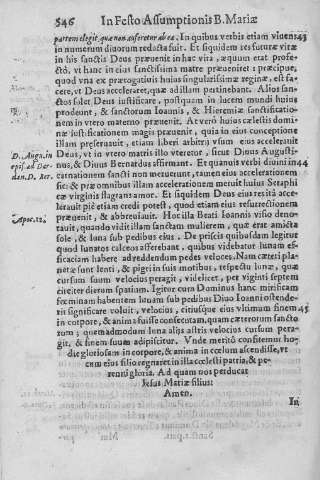 546 In Festo Assumptionis B. Mariæ
partem elegit, quæ non auferetur ab ea. In quibus verbis etiam viuens 43
in numerum diuorum redacta suit. Et siquidem res futuræ vitæ
in his sanctis Deus præuenit in hac vita, æquum erat profe-
ctò, vt hanc in eius sanctissima matre præueniret: præcipuè,
quod vna ex prærogatiuis huius singularissimæ reginæ, est fa-
cere, vt Deus acceleraret, quæ ad illam pertinebant. Alios san-
ctos solet Deus iustificare, postquam in lucem mundi huius
prodeunt, & sanctorum Ioannis, & Hieremiæ sanctificatio-
nem in vtero materno præuenit. At verò huius cælestis domi-
næ iustificationem magis præuenit, quia in eius conceptione
illam præseruauit, etiam liberi arbitrij vsum eius accelerauit
D. Aug. in Deus, vt in vtero matris illo vteretur, sicut Diuus Augusti-
nus, & Diuus Bernardus affirmant. Et quanuis verbi diuini in- 44
carnationem sancti non meruerunt, tamen eius accelerationem
sic: & præ omnibus illam accelerationem meruit huius Seraphi
cæ virginis flagrans amor. Et siquidem Deus eius res ita acce-
lerauit piè etiam credi potest, quod etiam eius resurrectionem
Apoc. 12. præuenit, & abbreuiauit. Hoc illa Beati Ioannis visio deno-
tauit, quando vidit illam sanctam mulierem, quæ erat amicta
sole, & luna sub pedibus eius. De priscis quibusdam legitur
quod lunatos calceos afferebant, quibus videbatur lunam ef-
ficaciam habere ad reddendum pedes veloces. Nam cæteri pla-
netæ sunt lenti, & pigri in suis motibus, respectu lunæ, quæ
cursum suum velocius peragit, videlicet, per viginti septem
circiter dierum spatium. Igitur cum Dominus hanc mirificam
fœminam habentem lunam sub pedibus Diuo Ioanni ostende-
rit significare voluit, velocius, citiusque eius vltimum finem 45
in corpore, & anima fuisse consecutam, quam cæterorum sancto
rum; quemadmodum luna alijs astris velocius cursum pera-
git, & finem suum adipiscitur. Vnde meritò confitemur ho-
die gloriosam in corpore, & anima in cœlum ascendisse, vt
cum eius filio regnaret in illa cœlesti patria, & pe-
renni gloria. Ad quam nos perducat
Iesus Mariæ filius:
Amen.
In